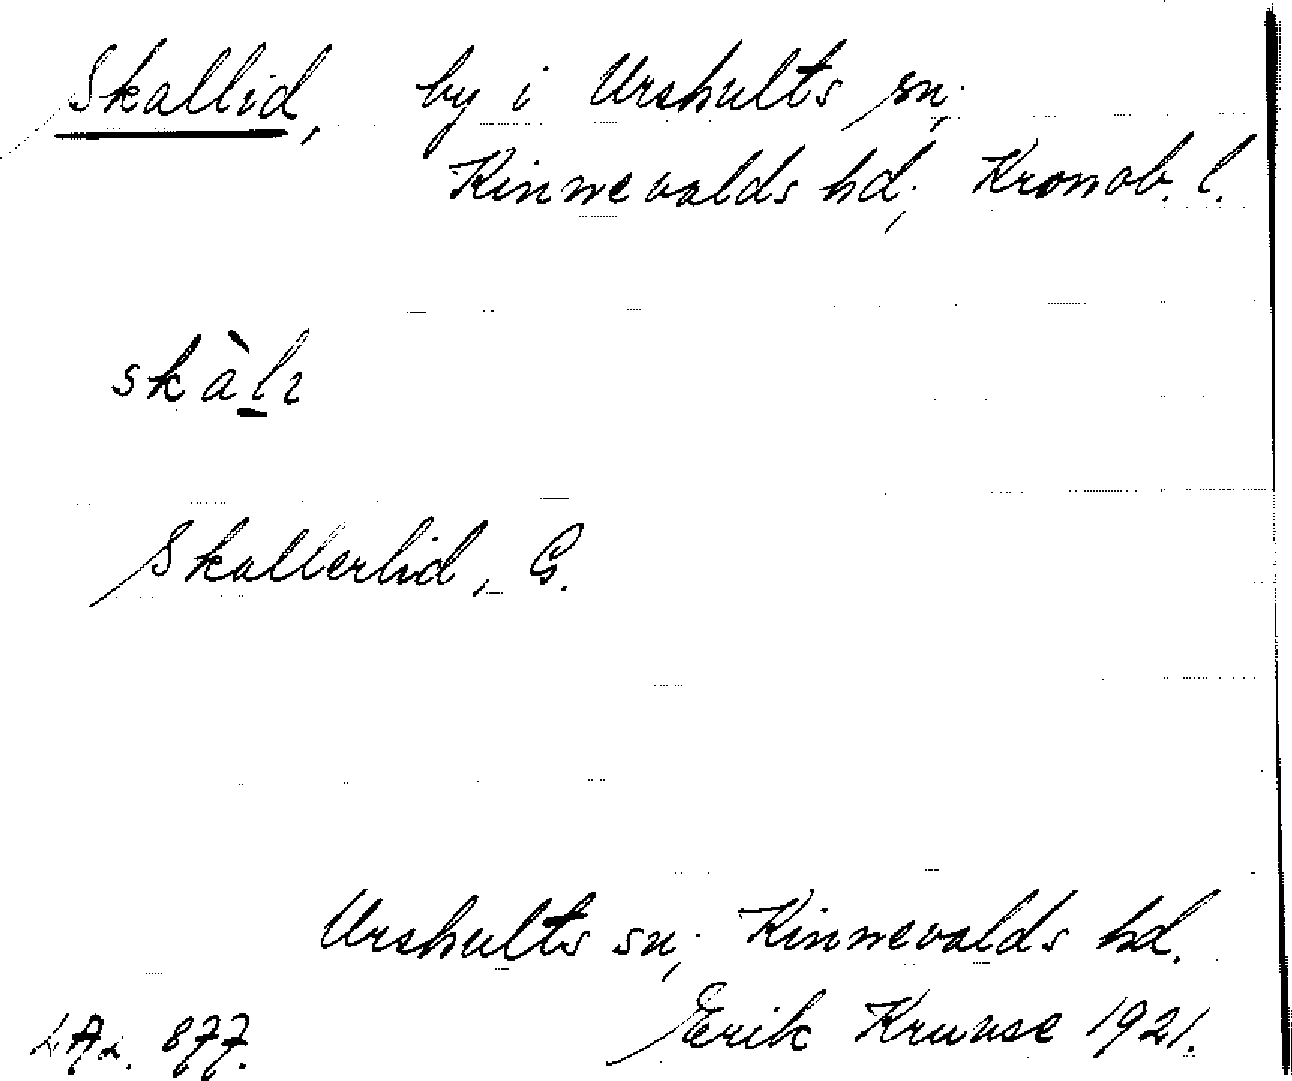 Skallid, by i Urshults sn;
Kinnevalds hd; Kronob. l.
skàl̲ɩ
Skallerlid, G.
Urshults sn; Kinnevalds hd.
Erik Kruuse 1921.
LAL. 877.